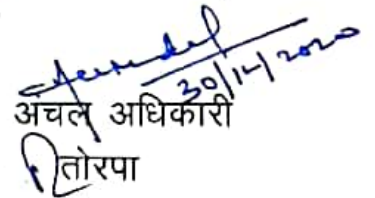 30/11/2020
अंचल अधिकारी
तोरपा